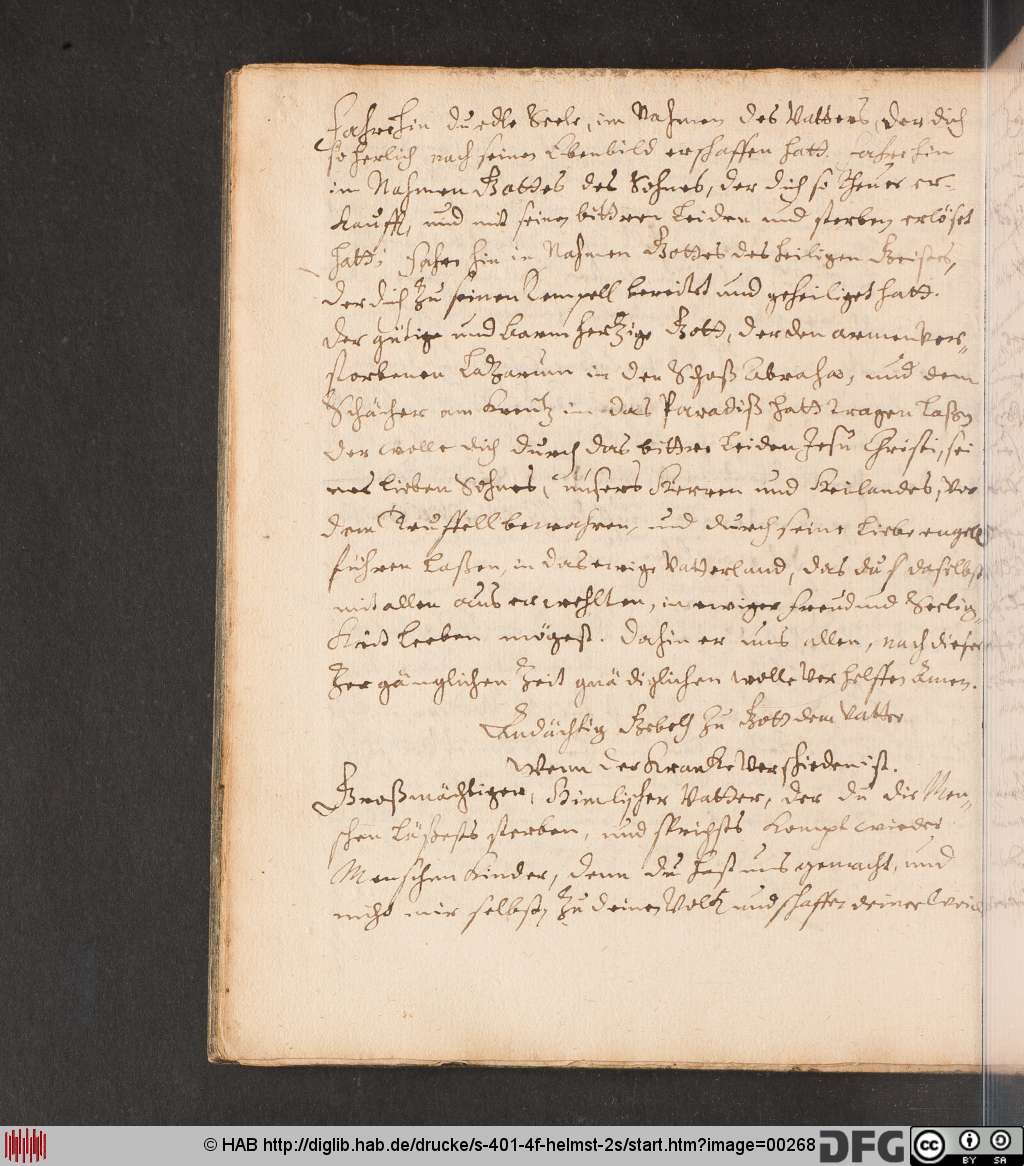 Fahre hin du edle Seele, im Nahmen des Vatters, der dich
so herlich nach seinen Ebenbild erschaffen hatt. fahre hin
im Nahmen Gottes des Sohnes, der dich so theuer er-
kaufft, und mit seinen bittren Leiden und sterben erlöset
hatt; fahre hin in Nahmen Gottes des heiligen Geistes,
der dich zu seinen Tempell bereitet und geheiliget hatt.
der gütige und barmhertzige Gott, der den armen ver„
storbenen Latzarum in den Schoß Abrahæ, und dem
Schächer am Kreutz in das Paradiß hatt tragen laßen
der wolle dich durch das bittre Leiden Jesu Christi, sei
nes lieben Sohnes, unsers Herren und Heilandes, vor
dem Teuffell bewahren, und durch seine liebe engell
führen laßen, in das ewige Vatterland, das du daselbst
mit allen auserwehlten, in ewiger freud und Seelig„
keit leeben mögest. dahin er uns allen, nach dieser
zergänglichen Zeit gnädiglichen wolle verhelffen Amen.
Andächtig Gebeth zu Gott dem Vatter
Wenn der Kranke verschieden ist.
Großmächtiger, Himlischer Vatter, der du die Men„
schen läßests sterben, und sprichsts kompt wieder
Menschen Kinder, denn du hast uns gemacht, und
nicht wir selbst, zu deinen Volk und schaffen deiner Weid
© HAB http://diglib.hab.de/drucke/s-401-4f-helmst-2s/start.htm?image=00268
DFG
cc
BY SA